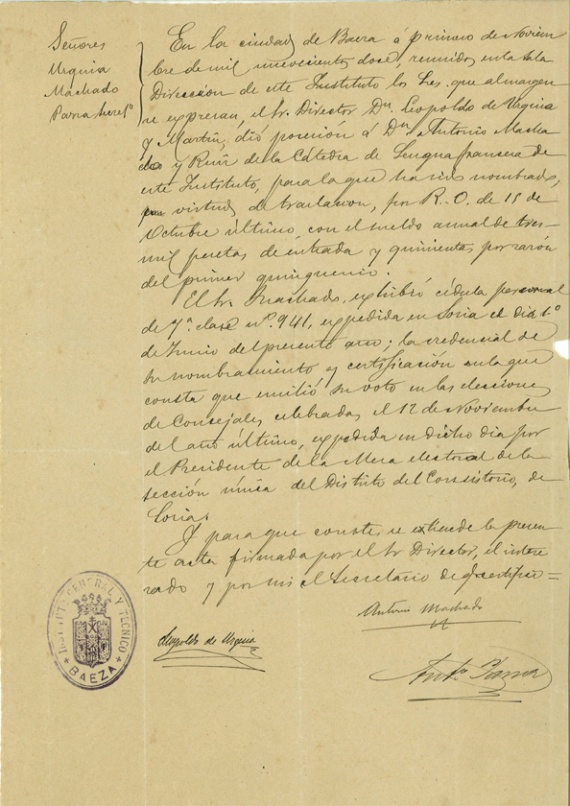 Señores
Urquía
Machado
Parra
En la ciudad de Baeza á primero de Noviem
bre de mil novecientos doce, reunidos en la Sala
Dirección de este Instituto los Sres. que al margen
se expresan, el Sr. Director Dn. Leopoldo de Urquía
y Martín, dió posesión á Dn. Antonio Macha
do y Ruiz de la Cátedra de Lengua francesa de
este Instituto, para la que ha sido nombrado,
en virtud de traslación, por R. O. de 15 de
Octubre último, con el sueldo anual de tres
mil pesetas de entrada y quinientas por razón
del primer quinquenio.
El Sr. Machado, exhibió cédula personal
de 7ª clase nº. 941, expedida en Soria el dia 1º
de Junio del presente año; la credencial de
su nombramiento y certificación en la que
consta que emitió su voto en las elecciones
de Consejales, celebradas el 12 de Noviembre
del año último, expedida en dicho dia por
el Presidente de la Mesa electoral de la
sección única del Distrito del Consistorio, de
Soria.
Y para que conste, se extiende la presen
te acta firmada por el Sr Director, el intere
sado y por mi el Secretario de q. certifico =
Antonio Machado
Leopoldo de Urquía
Antº Parra
INSTITUTO GENERAL Y TECNICO
BAEZA